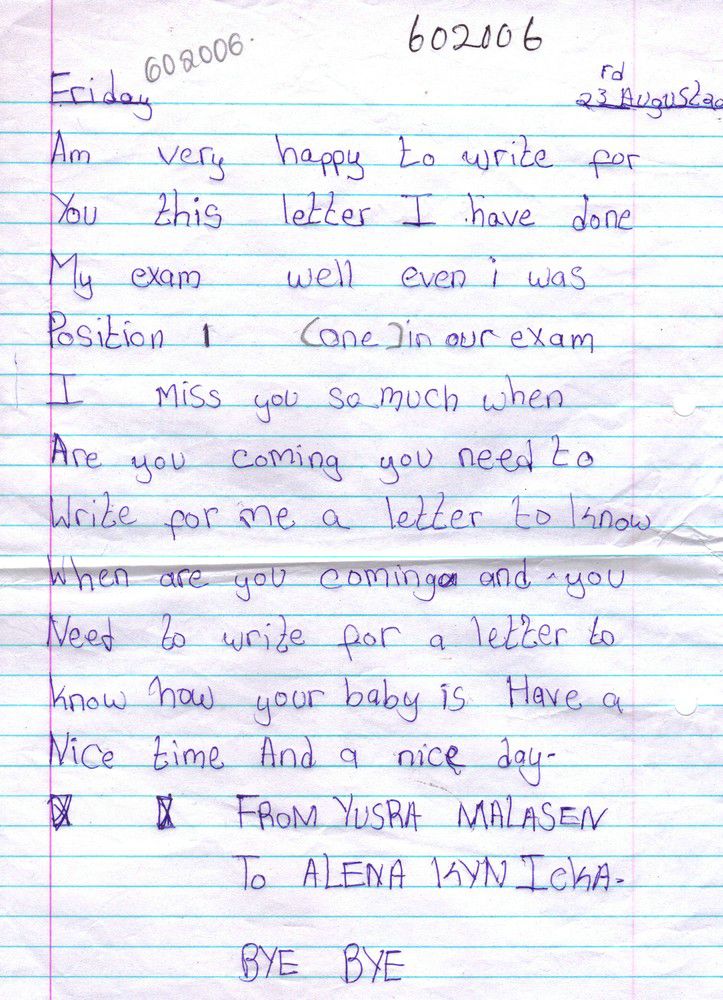 602006.
602006
Friday
23rd August 20
Am very happy to write for
You this letter I have done
My exam well even i was
Position 1 (one) in our exam
I Miss you so much when
Are you coming you need to
Write for me a letter to know
When are you coming and you
Need to write for a letter to
know how your baby is Have a
Nice time And a nice day-
FROM YUSRA MALASEN
To ALENA KYNICKA-
BYE BYE